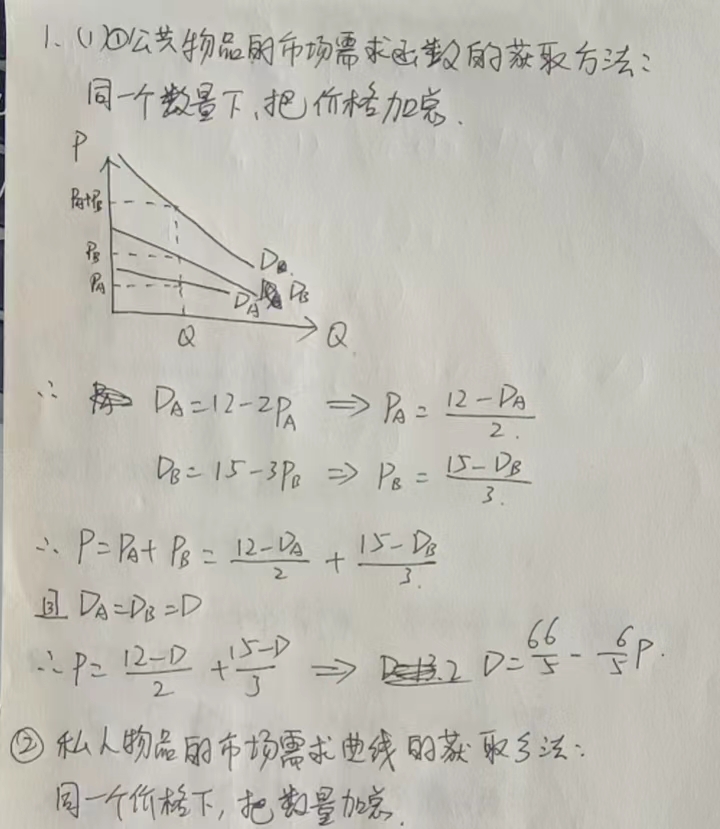 1、(1)①公共物品的市场需求函数的获取方法:
同一个数量下,把价格加总.
P
PA+PB
PB
PA
D
DA
DB
Q
Q
∴ DA=12-2PA ⟹ PA=(12-DA)/2.
DB=15-3PB ⟹ PB=(15-DB)/3.
∴ P=PA+PB=(12-DA)/2+(15-DB)/3.
因 DA=DB=D
∴P=(12-D)/2+(15-D)/3 ⟹ D=66/5-6/5P.
② 私人物品的市场需求曲线的获取方法:
同一个价格下,把数量加总.